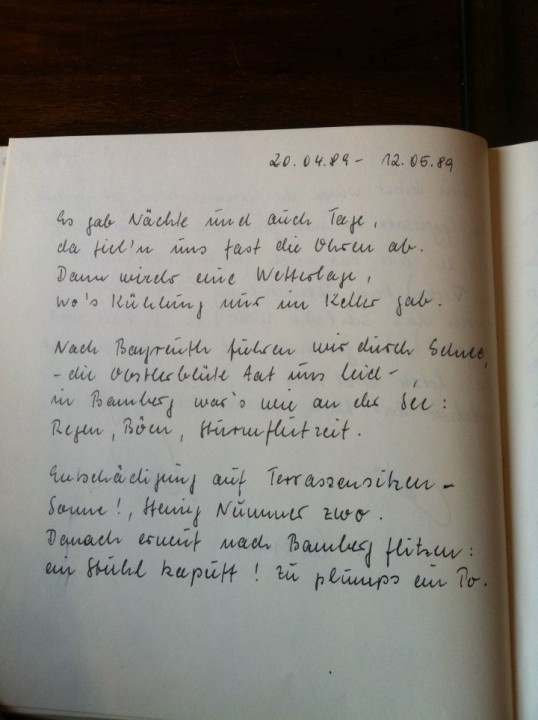 20.04.89 - 12.05.89
Es gab Nächte und auch Tage,
da fiel'n uns fast die Ohren ab.
Dann wieder eine Wetterlage,
wo's Kühlung nur im Keller gab.
Nach Bayreuth fuhren wir durch Schnee,
- die Obstlerblüte tat uns leid -,
in Bamberg war's wie an der See:
Regen, Böen, Sturmflutzeit.
Entschädigung auf Terrassensitzen -
Sonne!, Nummer zwo.
Danach erneut nach Bamberg flitzen:
ein Stuhl kaputt! zu plumps ein Po.